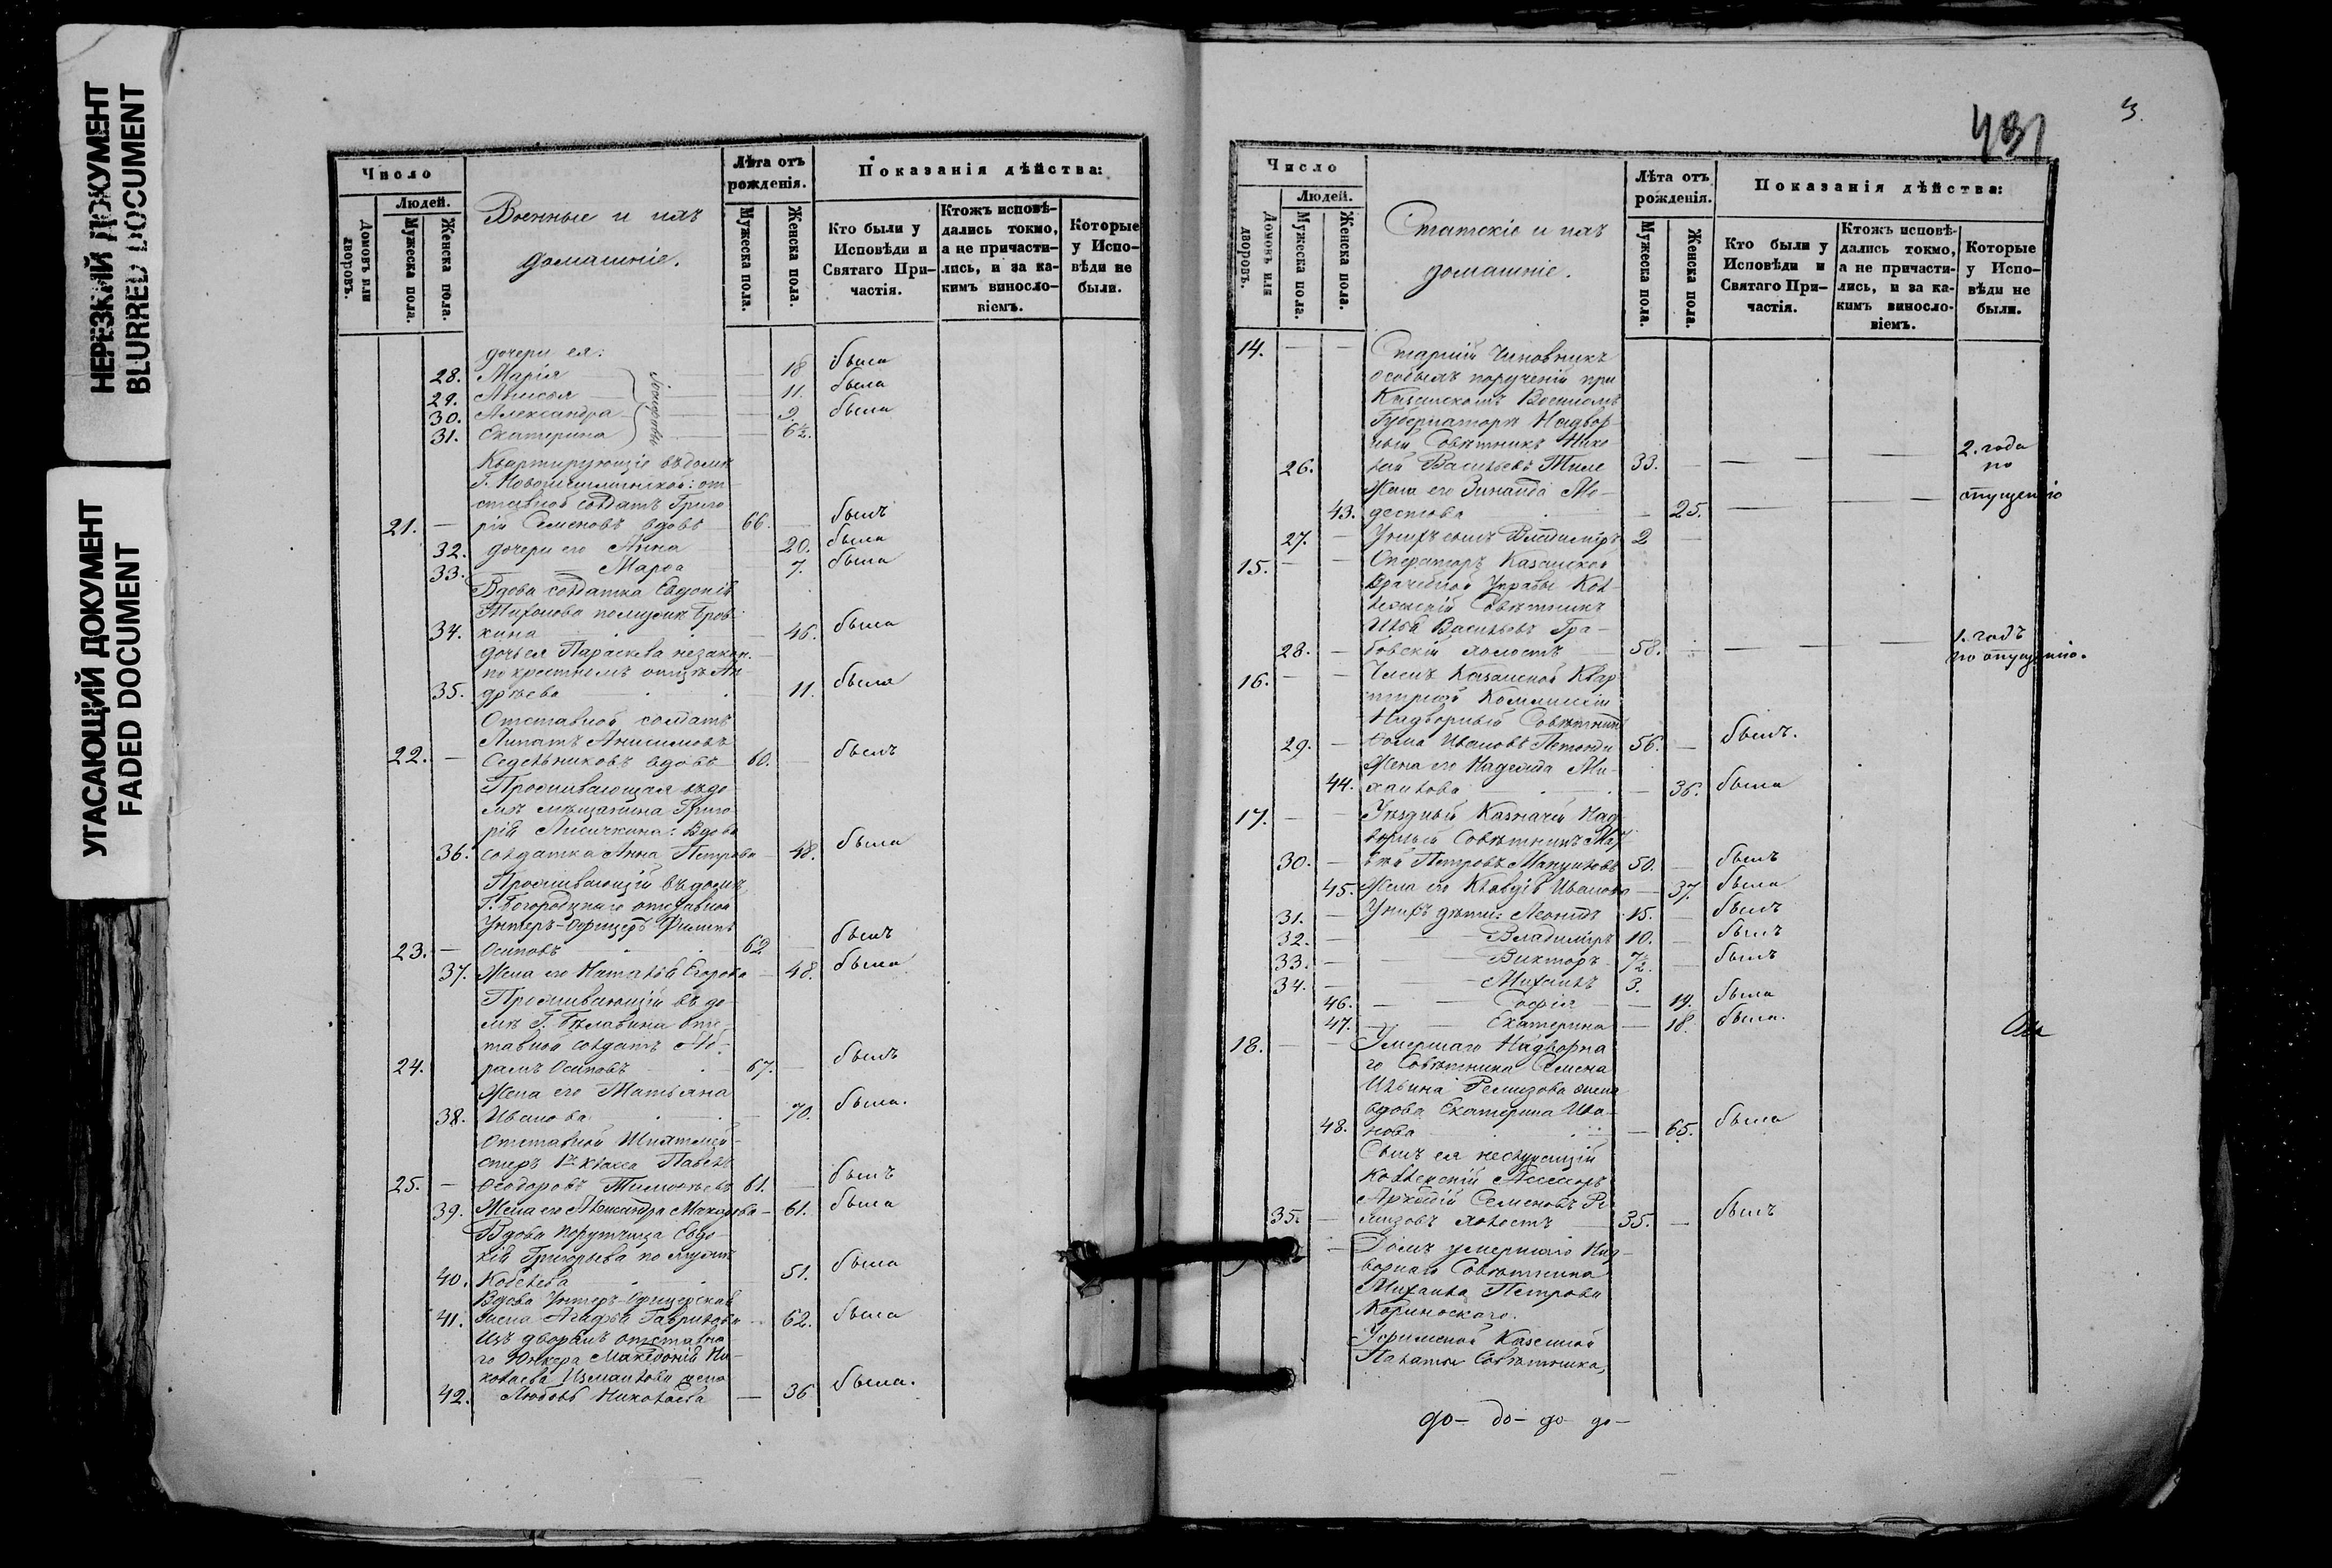 НЕРЕЗКИЙ ДОКУМЕНТ
BLURRED DOCUMENT
УГАСАЮЩИЙ ДОКУМЕНТ
FADED DOCUMENT
Число
Людей.
Домовъ или дворовъ.
Мужеска пола.
Женска пола.
Военные и ихъ
домашніе.
Лѣта отъ рожденія.
Мужеска пола.
Женска пола.
Показанія дѣйства:
Кто были у Исповѣди и Святаго При-частія.
Ктожъ исповѣ-дались токмо, а не причасти-лись, и за ка-кимъ виносло-віемъ.
Которые у Испо-вѣди не были.
дочери ея:
28. Марія — 18 была
29. Анисья — 11. была
30. Александра — 9. была
31. Екатерина — 6½.
Квартирующіе въ домѣ
Г. Новошешминской: от-
ставной солдатъ Григо-
21. — рій Семеновъ вдовъ 66. — былъ
32. дочери его Анна 20. была
33. — Марѳа 7. была
Вдова солдатка Евдокія
34. кина — 46. была
дочь ея Параскева незакон.
по крестномъ отцѣ Ан-
35. дрѣева — 11. была
Отставной солдатъ
Липатъ Анисимовъ
22. — Седельниковъ вдовъ 60. — былъ
Проживающая въ до-
мѣ мѣщанина Григо-
рія Лисичкина: Вдова
36. солдатка Анна Петрова — 48. была
Проживающій въ домѣ
Г. Богородцкаго отставной
Унтеръ-Офицеръ Филипъ
23. — Осиповъ 62 — былъ
37. Жена его Наталья Егорова — 48. была
Проживающій въ до-
мѣ Г. Бѣлавина отс-
тавной солдатъ Аб-
24. рамъ Осиповъ 67. — былъ
Жена его Татьяна
38. Иванова — 70. была.
Отставной
25. — Ѳеодоровъ Тимоѳѣевъ 61. — былъ
39. Жена его Александра — 61. была
Вдова Порутчица Евдо-
кія Григорьева по мужѣ
40. Кобелева 51. была
Вдова Унтеръ-Офицерская
41. жена Агафья Гаврилова — 62. была
Изъ дворянъ отставна-
го Юнкера Македонія Ни-
колаева Измаилова жена
42. Любовь Николаева — 36 была.
431
3.
Число
Людей.
Домовъ или дворовъ.
Мужеска пола.
Женска пола.
Статскіе и ихъ
домашніе.
Лѣта отъ рожденія.
Мужеска пола.
Женска пола.
Показанія дѣйства:
Кто были у Исповѣди и Святаго При-частія.
Ктожъ исповѣ-дались токмо, а не причасти-лись, и за ка-кимъ виносло-віемъ.
Которые у Испо-вѣди не были.
14. — — Старшій Чиновникъ
особыхъ порученій при
Казанскомъ Военномъ
Губернаторѣ Надвор-
ный Совѣтникъ Нико-
26. лай Васильевъ Тиле 33. — — — — 2. года по
Жена его Зинаида Мо-
43. дестова — 25. — — опущенію
27. — У нихъ сынъ Владиміръ 2 —
15. — — Операторъ Казанской
Врачебной Управы Кол-
лежскій Совѣтникъ
Илья Васильевъ Гра-
28. — бовскій холостъ 58. — — — — 1. годъ
по опущенію.
16. — — Членъ Казанской Квар-
тирной Коммиссіи
Надворный Совѣтникъ
29. — Ѳома Ивановъ 56. — былъ.
Жена его Надежда Ми-
44. хаилова — 36. была
17. — — Уѣздный Казначей Над-
ворный Совѣтникъ Мат-
30. — вѣй Петровъ 50. — былъ
45. Жена его Клавдія Иванова — 37. была
31. — У нихъ дѣти: Леонидъ 15. — былъ
32. — — Владиміръ 10. — былъ
33. — — Викторъ 7½. — былъ
34. — — Михаилъ 3.
46. — — Софія — 19. была
47. — — Екатерина — 18. была.
18. — — Умершаго Надворна-
го Совѣтника Семена
Ильина Ремизова жена
вдова Екатерина Ива-
48. нова — 65. была
Сынъ ея неслужащій
Коллежскій Асессоръ
Аркадій Семеновъ Ре-
35. — мизовъ холостъ 35. — былъ
— Домъ умершаго Над-
ворнаго Совѣтника
Михаила Петрова
Коринѳскаго.
Уфимской Казенной
Палаты Совѣтника,
до— до— до до—